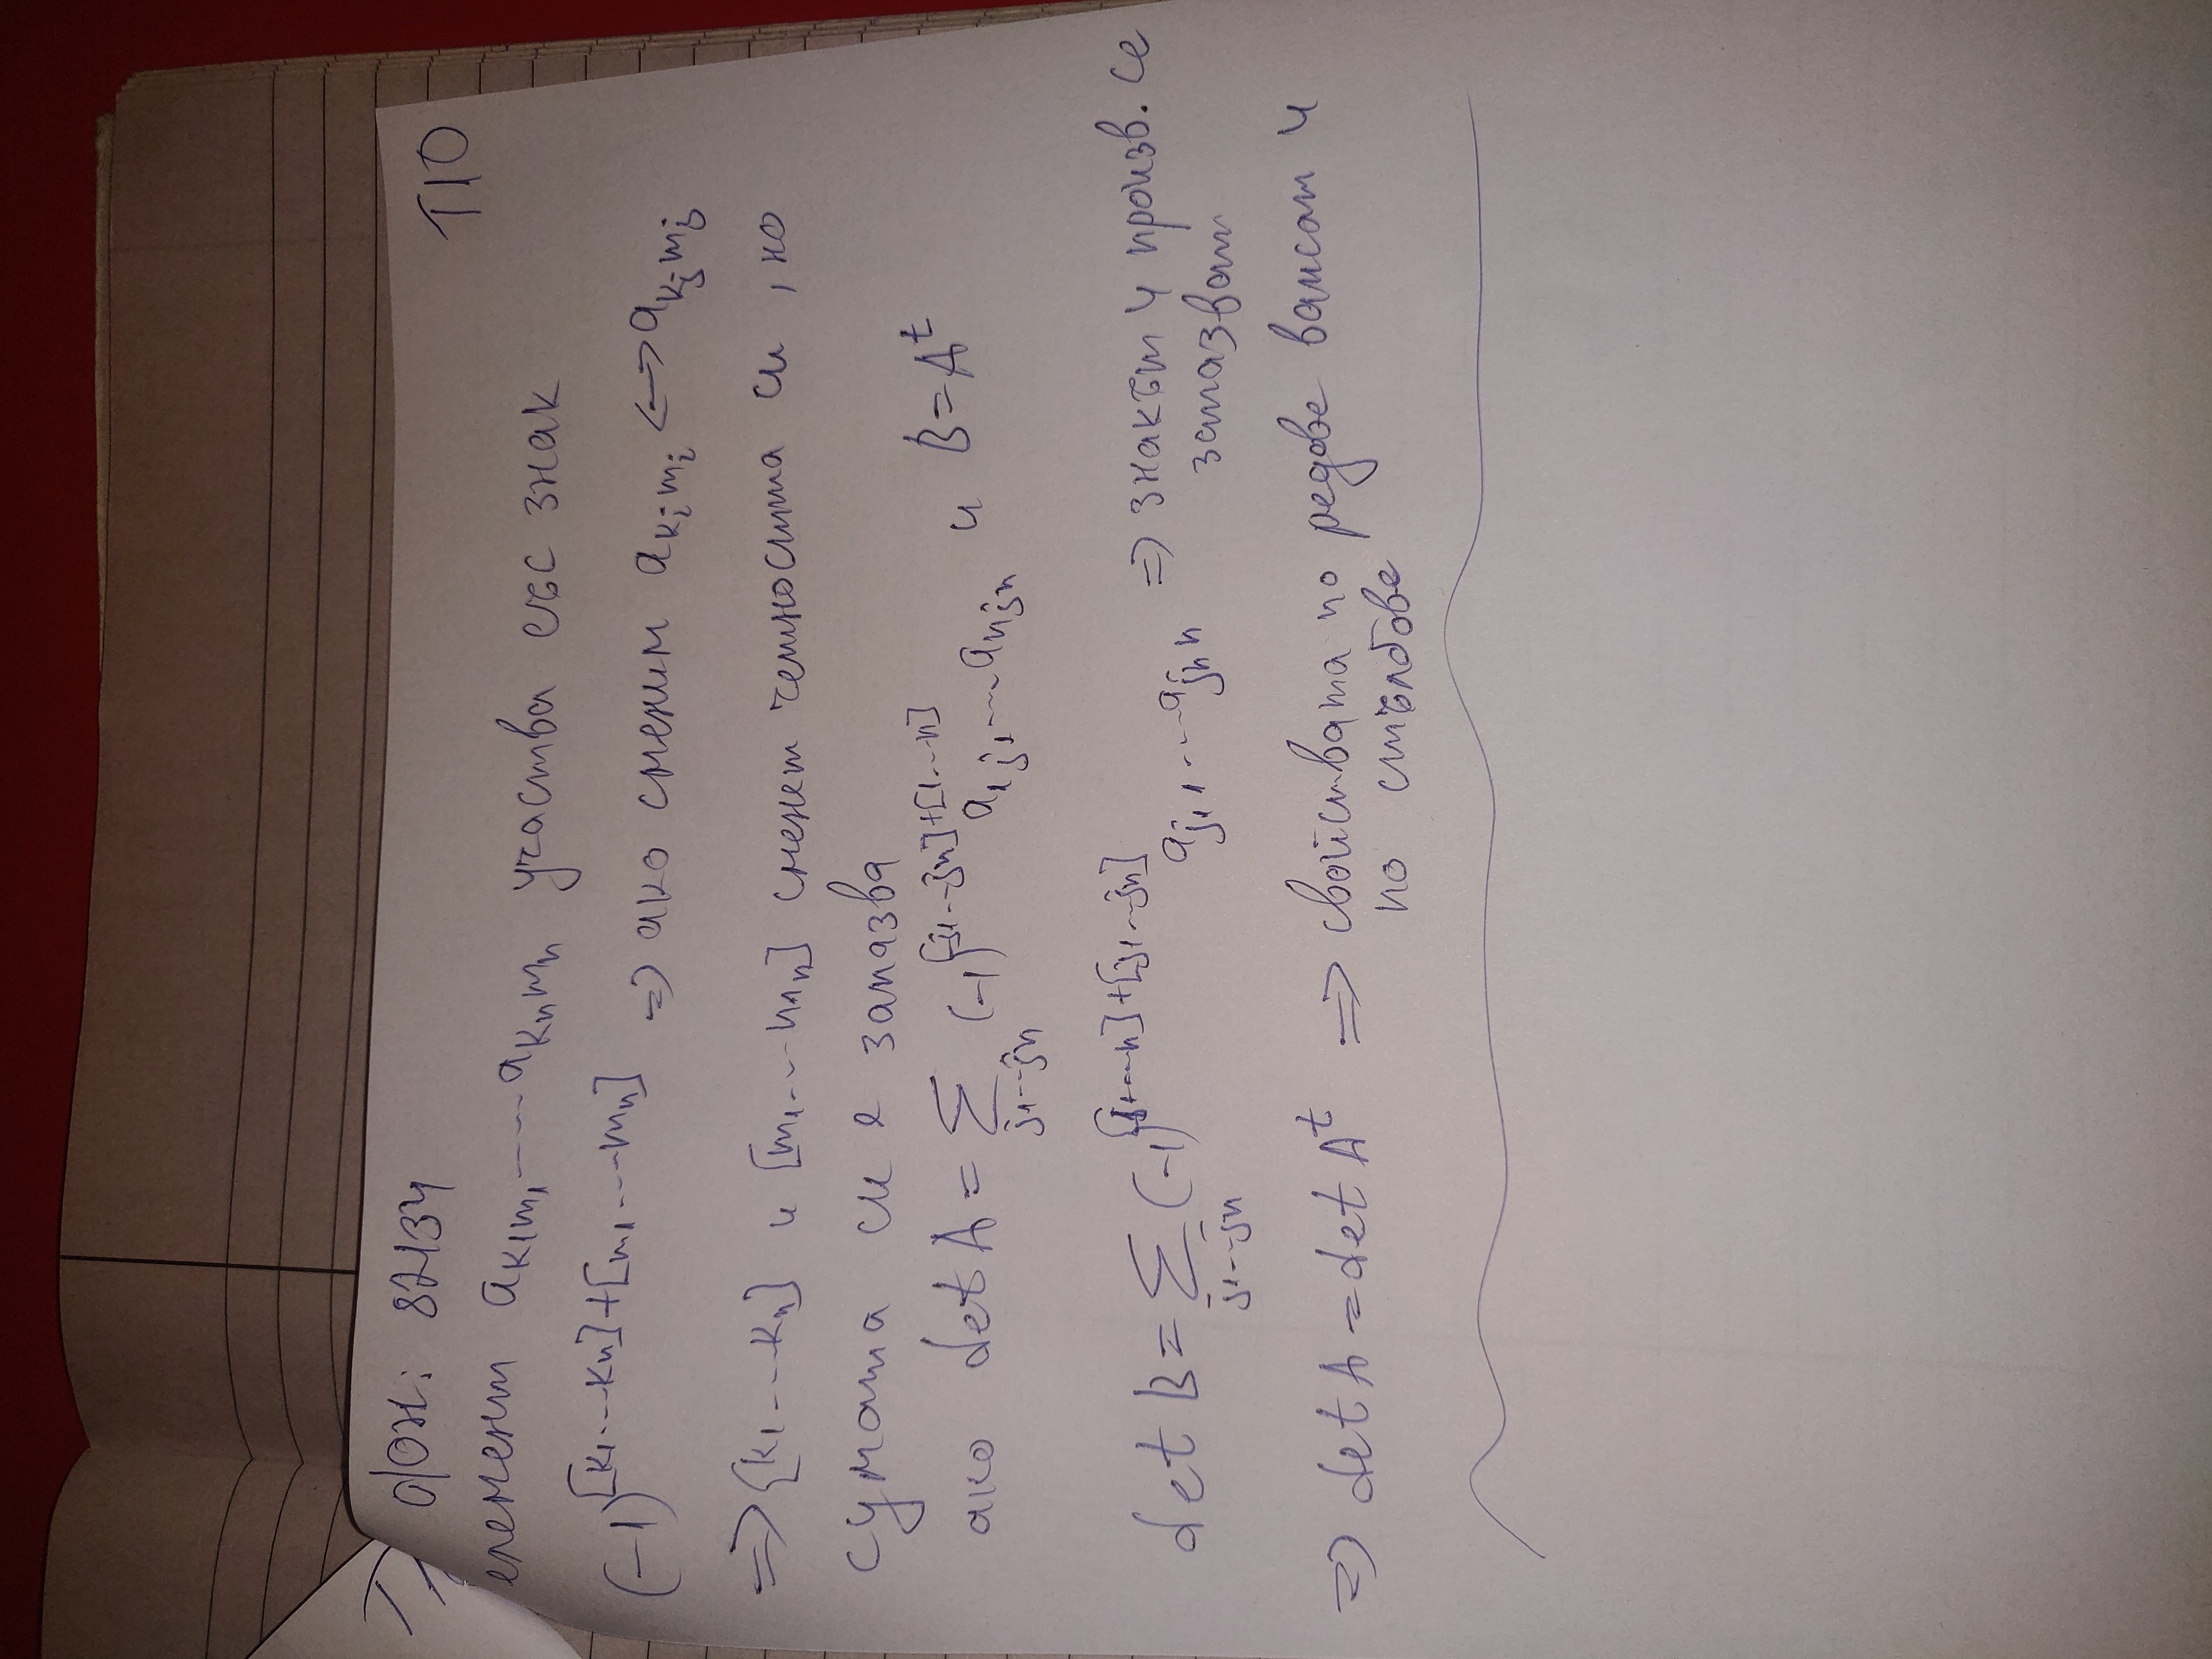 фон: 82134
T10
елемент a_{k_1m_1} ---- a_{k_nm_n} участва със знак
(-1)^{[k_1...k_n]+[m_1...m_n]} => ако сменим a_{k_im_i} <-> a_{k_jm_j}
=> [k_1...k_n] и [m_1...m_n] сменят четността си, но
сумата си е запазва
ако det A = Σ_{j_1...j_n} (-1)^{[j_1...j_n]+[1...n]} a_{1j_1}....a_{nj_n} и B=A^t
det B = Σ_{j_1...j_n} (-1)^{[1...n]+[j_1...j_n]} a_{j_11}....a_{j_nn} => знакът и произв. се
запазват
=> det A = det A^t => свойствата по редове важат и
по стълбове